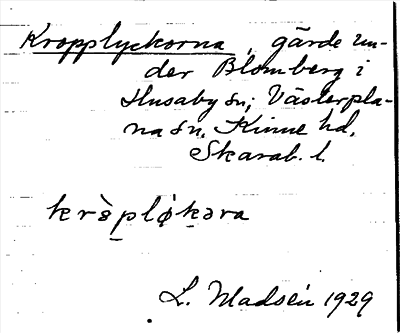 Kropplyckorna, gärde un-
der Blomberg i
Husaby sn; Västerpla-
na sn, Kinne hd,
Skarab. l.
krò̱plǿḵəra
L. Madsén 1929